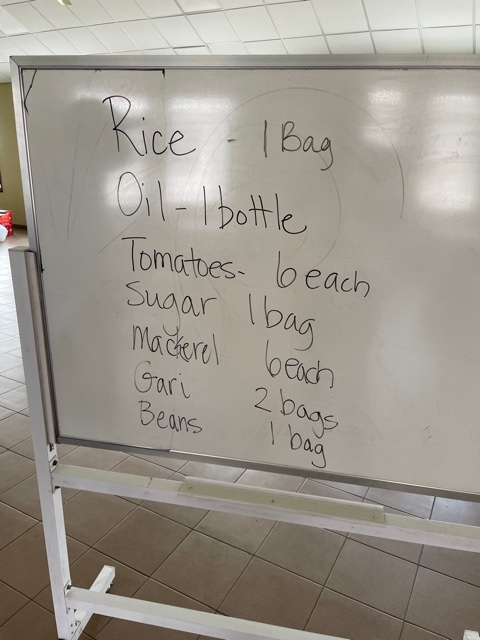 Rice - 1 Bag
Oil - 1 bottle
Tomatoes - 6 each
Sugar 1 bag
Mackerel 6 each
Gari 2 bags
Beans 1 bag